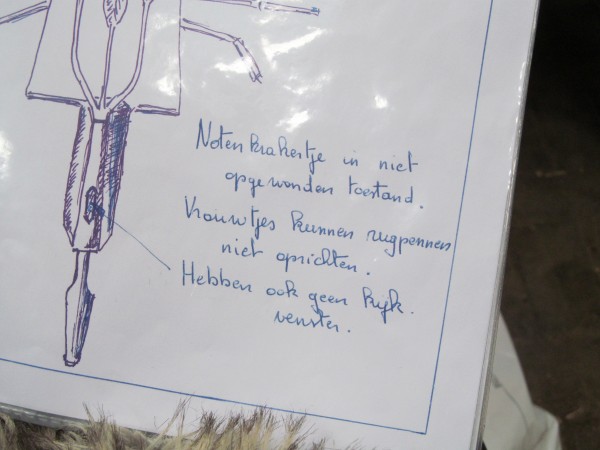 Notenkrakertje in niet
opgewonden toestand.
Vrouwtjes kunnen rugpennen
niet oprichten.
Hebben ook geen kijk.
venster.